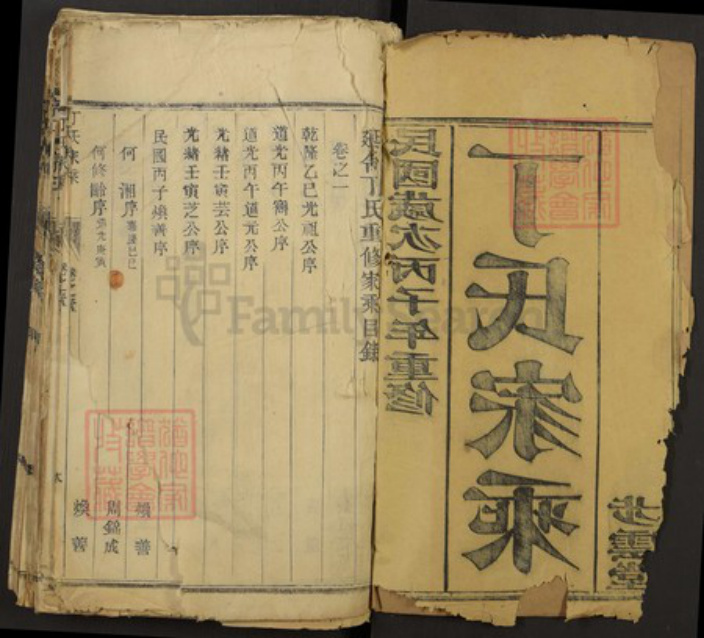 丁氏家乘
民國歲次丙子年重修
步雲堂
延令丁氏重修家乘目錄
卷之一
乾隆乙巳光祖公序
道光丙午公序
道光丙午道元公序
光緒壬寅芸公序
光緒壬寅芝公序
民國丙子煥善序
何湘序
何修齡序
煥善
周錦成
煥善
丁氏家乘
FamilySearch